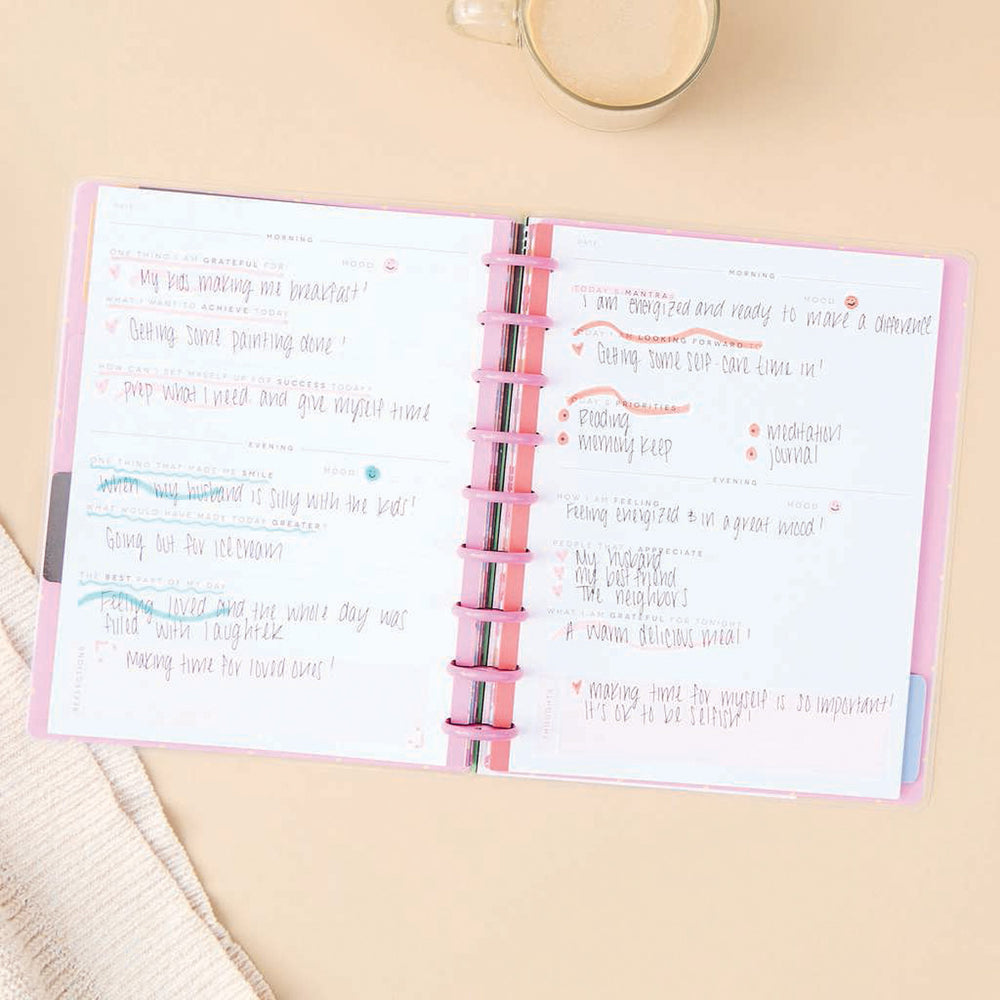 DATE:
MORNING
ONE THING I AM GRATEFUL FOR
MOOD
My kids making me breakfast!
WHAT I WANT TO ACHIEVE TODAY
Getting some painting done!
HOW CAN I SET MYSELF UP FOR SUCCESS TODAY?
prep what I need and give myself time
EVENING
ONE THING THAT MADE ME SMILE
MOOD
When my husband is silly with the kids!
WHAT WOULD HAVE MADE TODAY GREATER?
Going out for ice cream
THE BEST PART OF MY DAY
Feeling loved and the whole day was
filled with laughter
REFLECTIONS
Making time for loved ones!
DATE:
MORNING
TODAY'S MANTRA
MOOD
I am energized and ready to make a difference
TODAY I AM LOOKING FORWARD TO
Getting some self-care time in!
TODAY'S PRIORITIES
Reading
meditation
memory keep
journal
EVENING
HOW I AM FEELING
MOOD
Feeling energized & in a great mood!
PEOPLE APPRECIATE
My husband
my best friend
The neighbors
WHAT I AM GRATEFUL FOR TONIGHT
A warm delicious meal!
THOUGHTS
making time for myself is so important!
It's ok to be selfish!